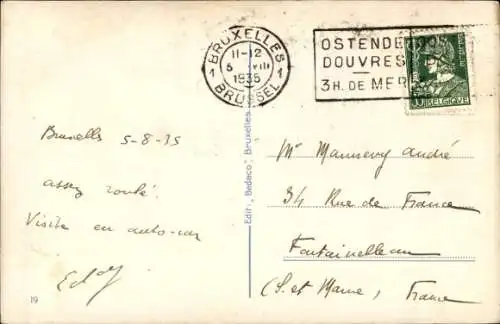 BRUXELLES
11-12
5 VIII
1935
1 1
BRUSSEL
OSTENDE
DOUVRES
3H. DE MER
BELGIQUE
Bruxelles 5-8-35
assez roulé.
Visite en auto-car
19
Edit. "Bedaco", Bruxelles
Mr Mannevy André
34 Rue de France
Fontainebleau
(S. et Marne) France